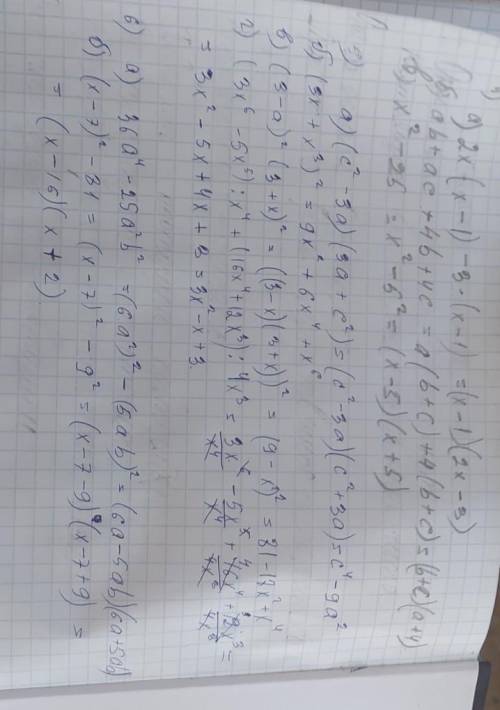 а) 2x·(x-1) - 3·(x-1) = (x-1)(2x-3)
ab+ac+4b+4c = a(b+c)+4(b+c)=(b+c)(a+4)
x² - 25 = x² - 5² = (x-5)(x+5)
а) (c² - 3a)(3a + c²) = (c² - 3a)(c² + 3a) = c⁴ - 9a²
б) (3x + x³)² = 9x² + 6x⁴ + x⁶
в) (3-a)² (3+x)² = ((3-x)(3+x))² = (9-x²)² = 81-18x²+x⁴
г) (3x⁶ - 5x⁵) : x⁴ + (16x⁴+12x³) : 4x³ = 3x⁶/x⁴ - 5x⁵/x⁴ + 16x⁴/4x³ + 12x³/4x³ =
= 3x² - 5x + 4x + 3 = 3x² - x + 3
в) а) 36a⁴ - 25a²b² = (6a²)² - (5ab)² = (6a-5ab)(6a+5ab)
б) (x-7)² - 81 = (x-7)² - 9² = (x-7-9)(x-7+9) =
= (x-16)(x+2)